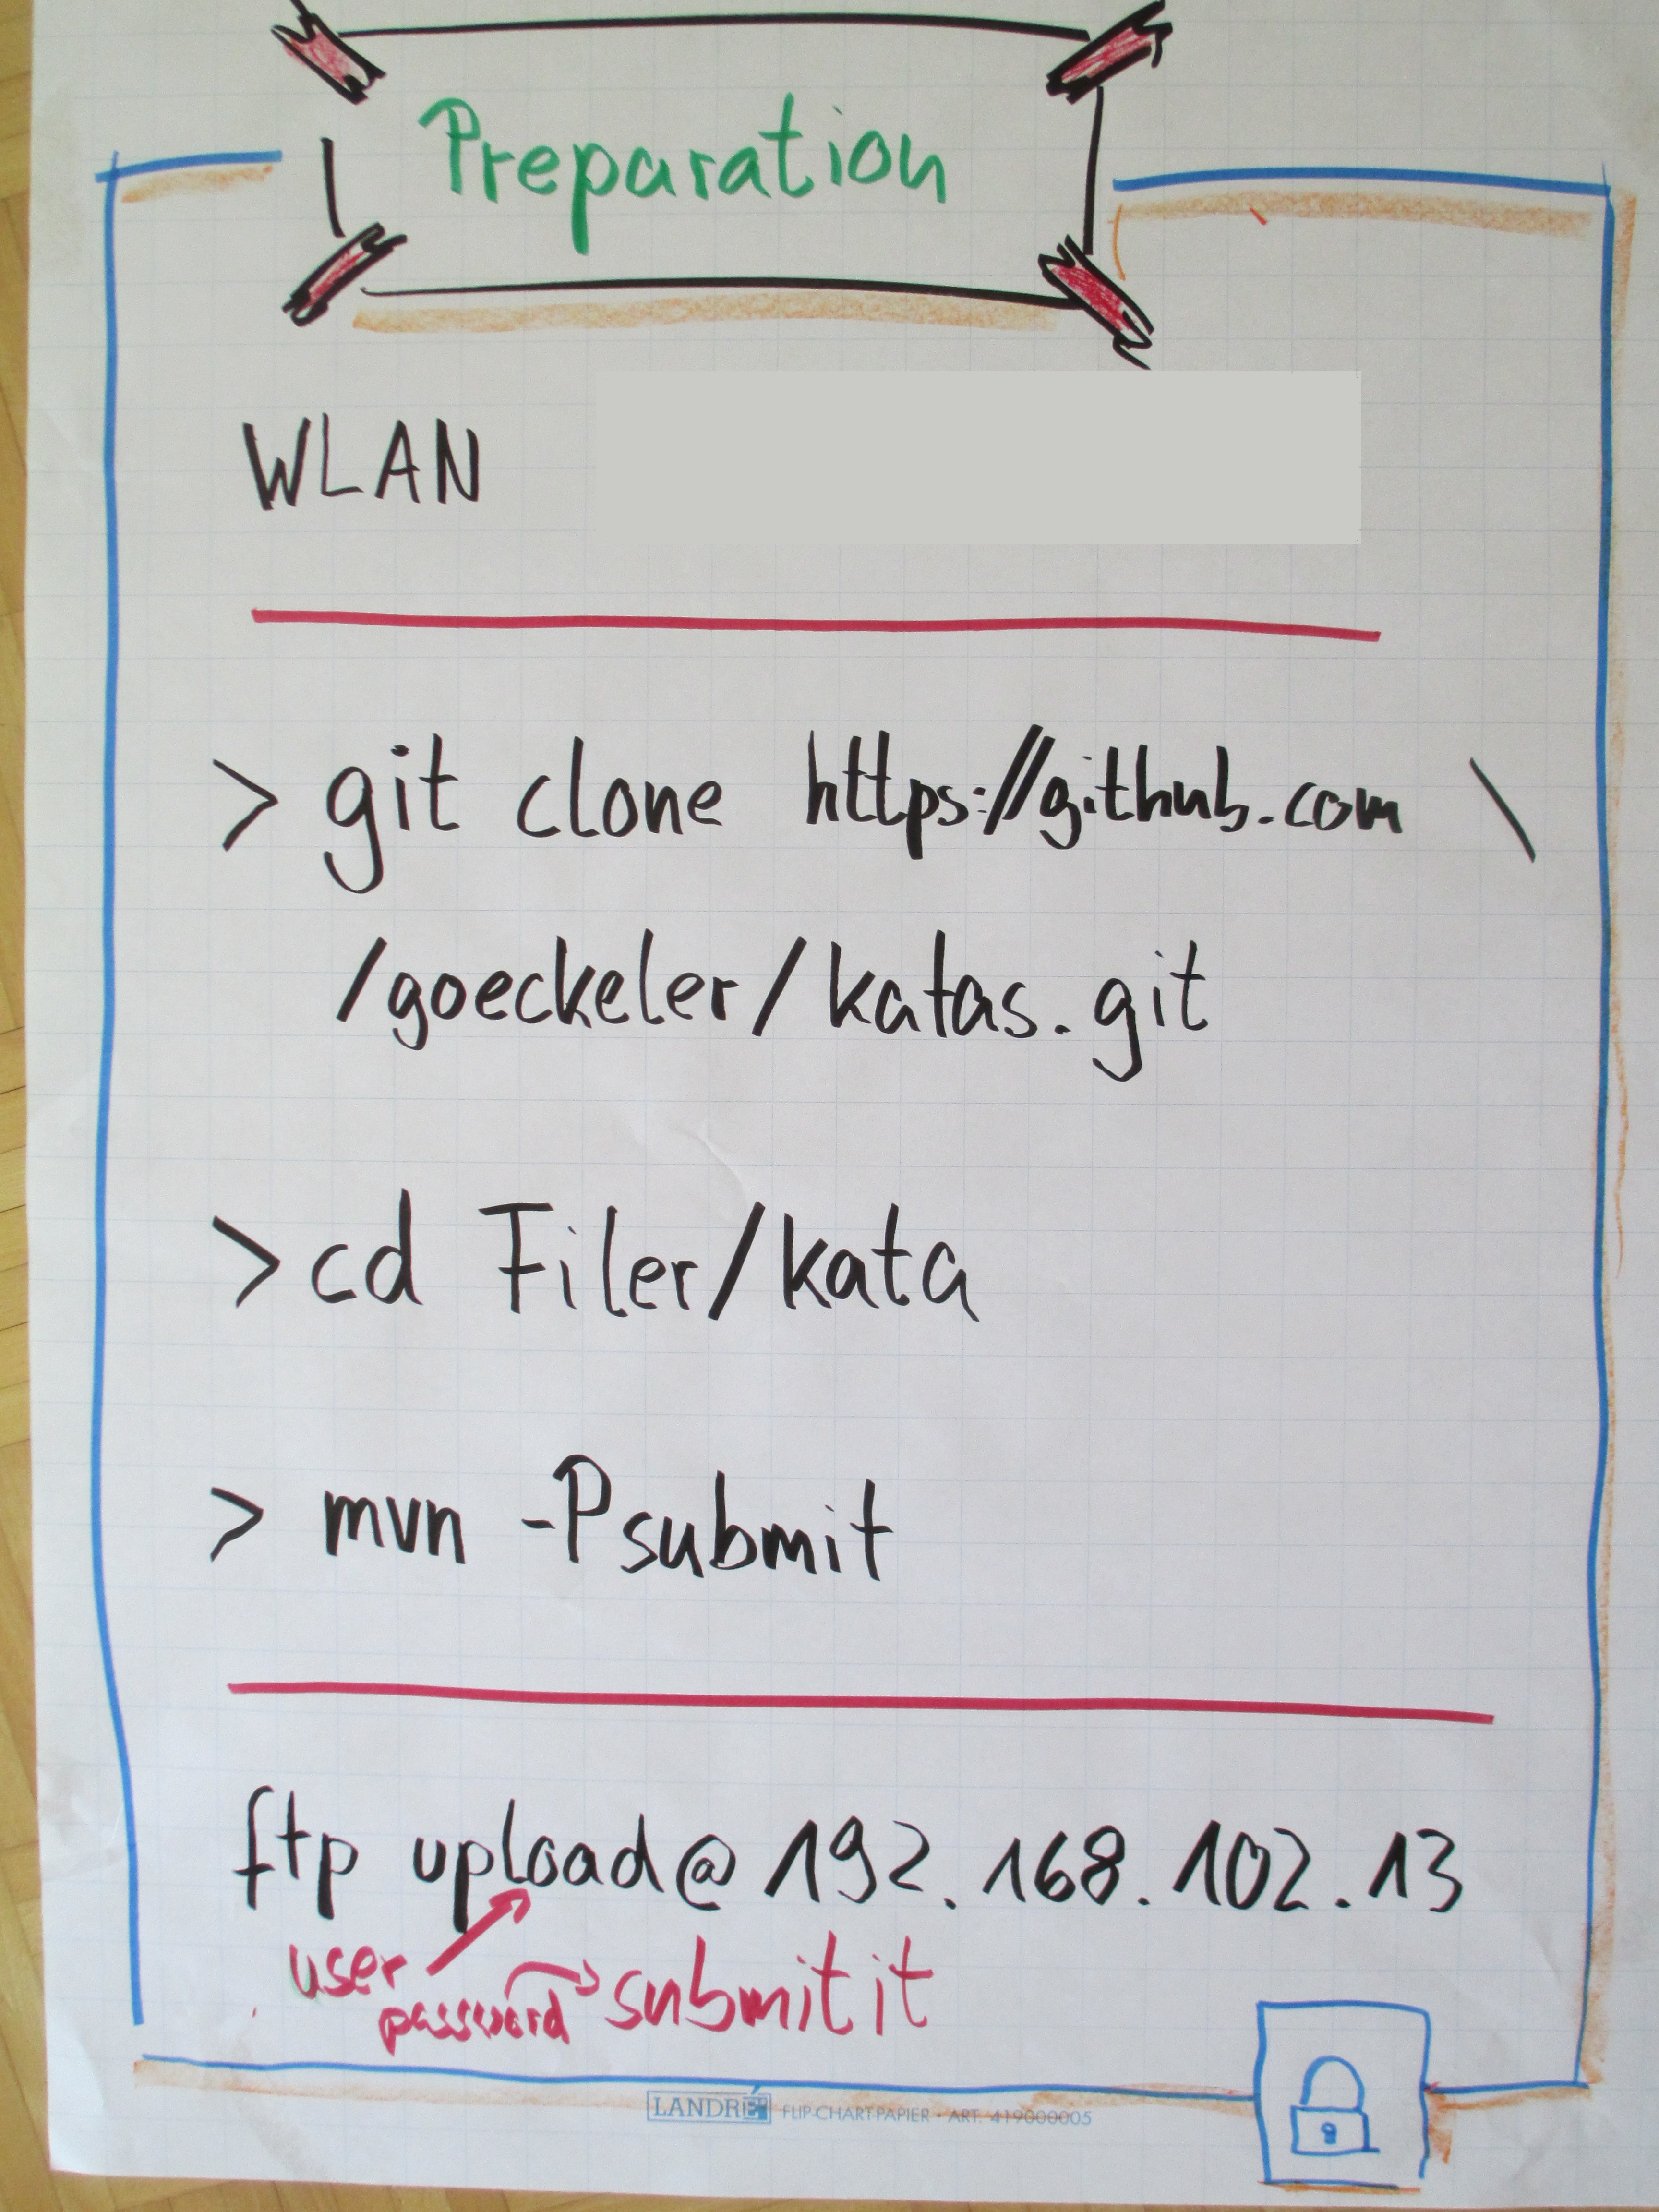 Preparation
WLAN
> git clone https://github.com \
/goeckeler/katas.git
> cd Filer/kata
> mvn -Psubmit
ftp upload@192.168.102.13
user
password submitit
LANDRÉ FLIP-CHART-PAPIER • ART. 419000005